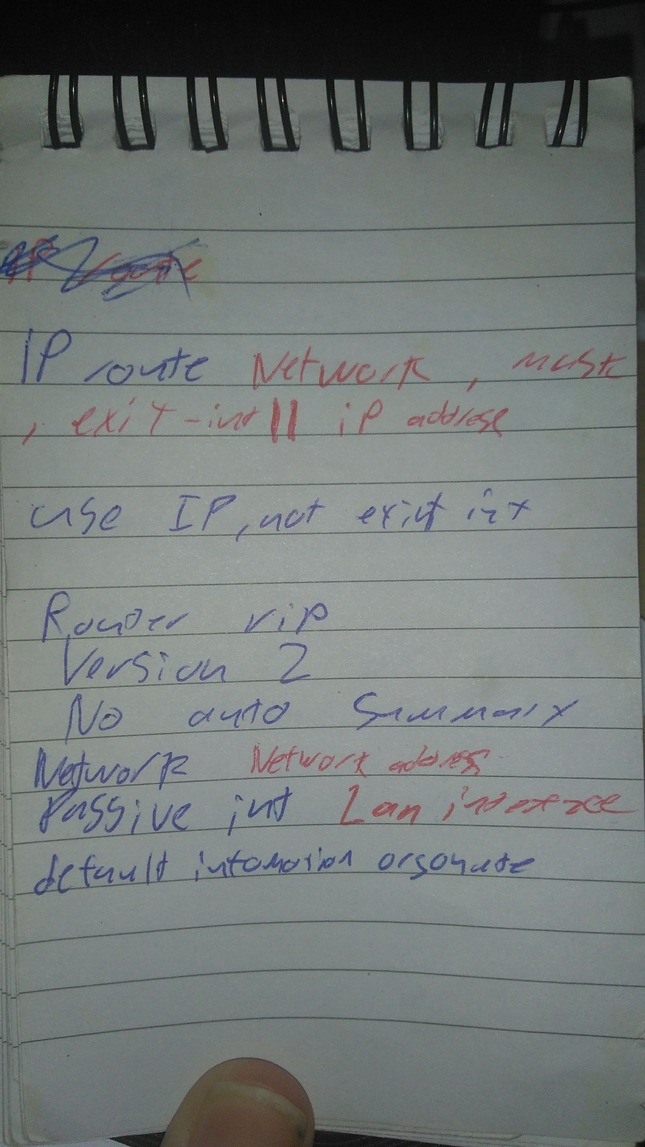 IP route
IP route Network, mask
, exit-int || iP address
use IP, not exit int
Router rip
Version 2
No auto summary
Network Network address
Passive int Lan interface
default intomation orgonate